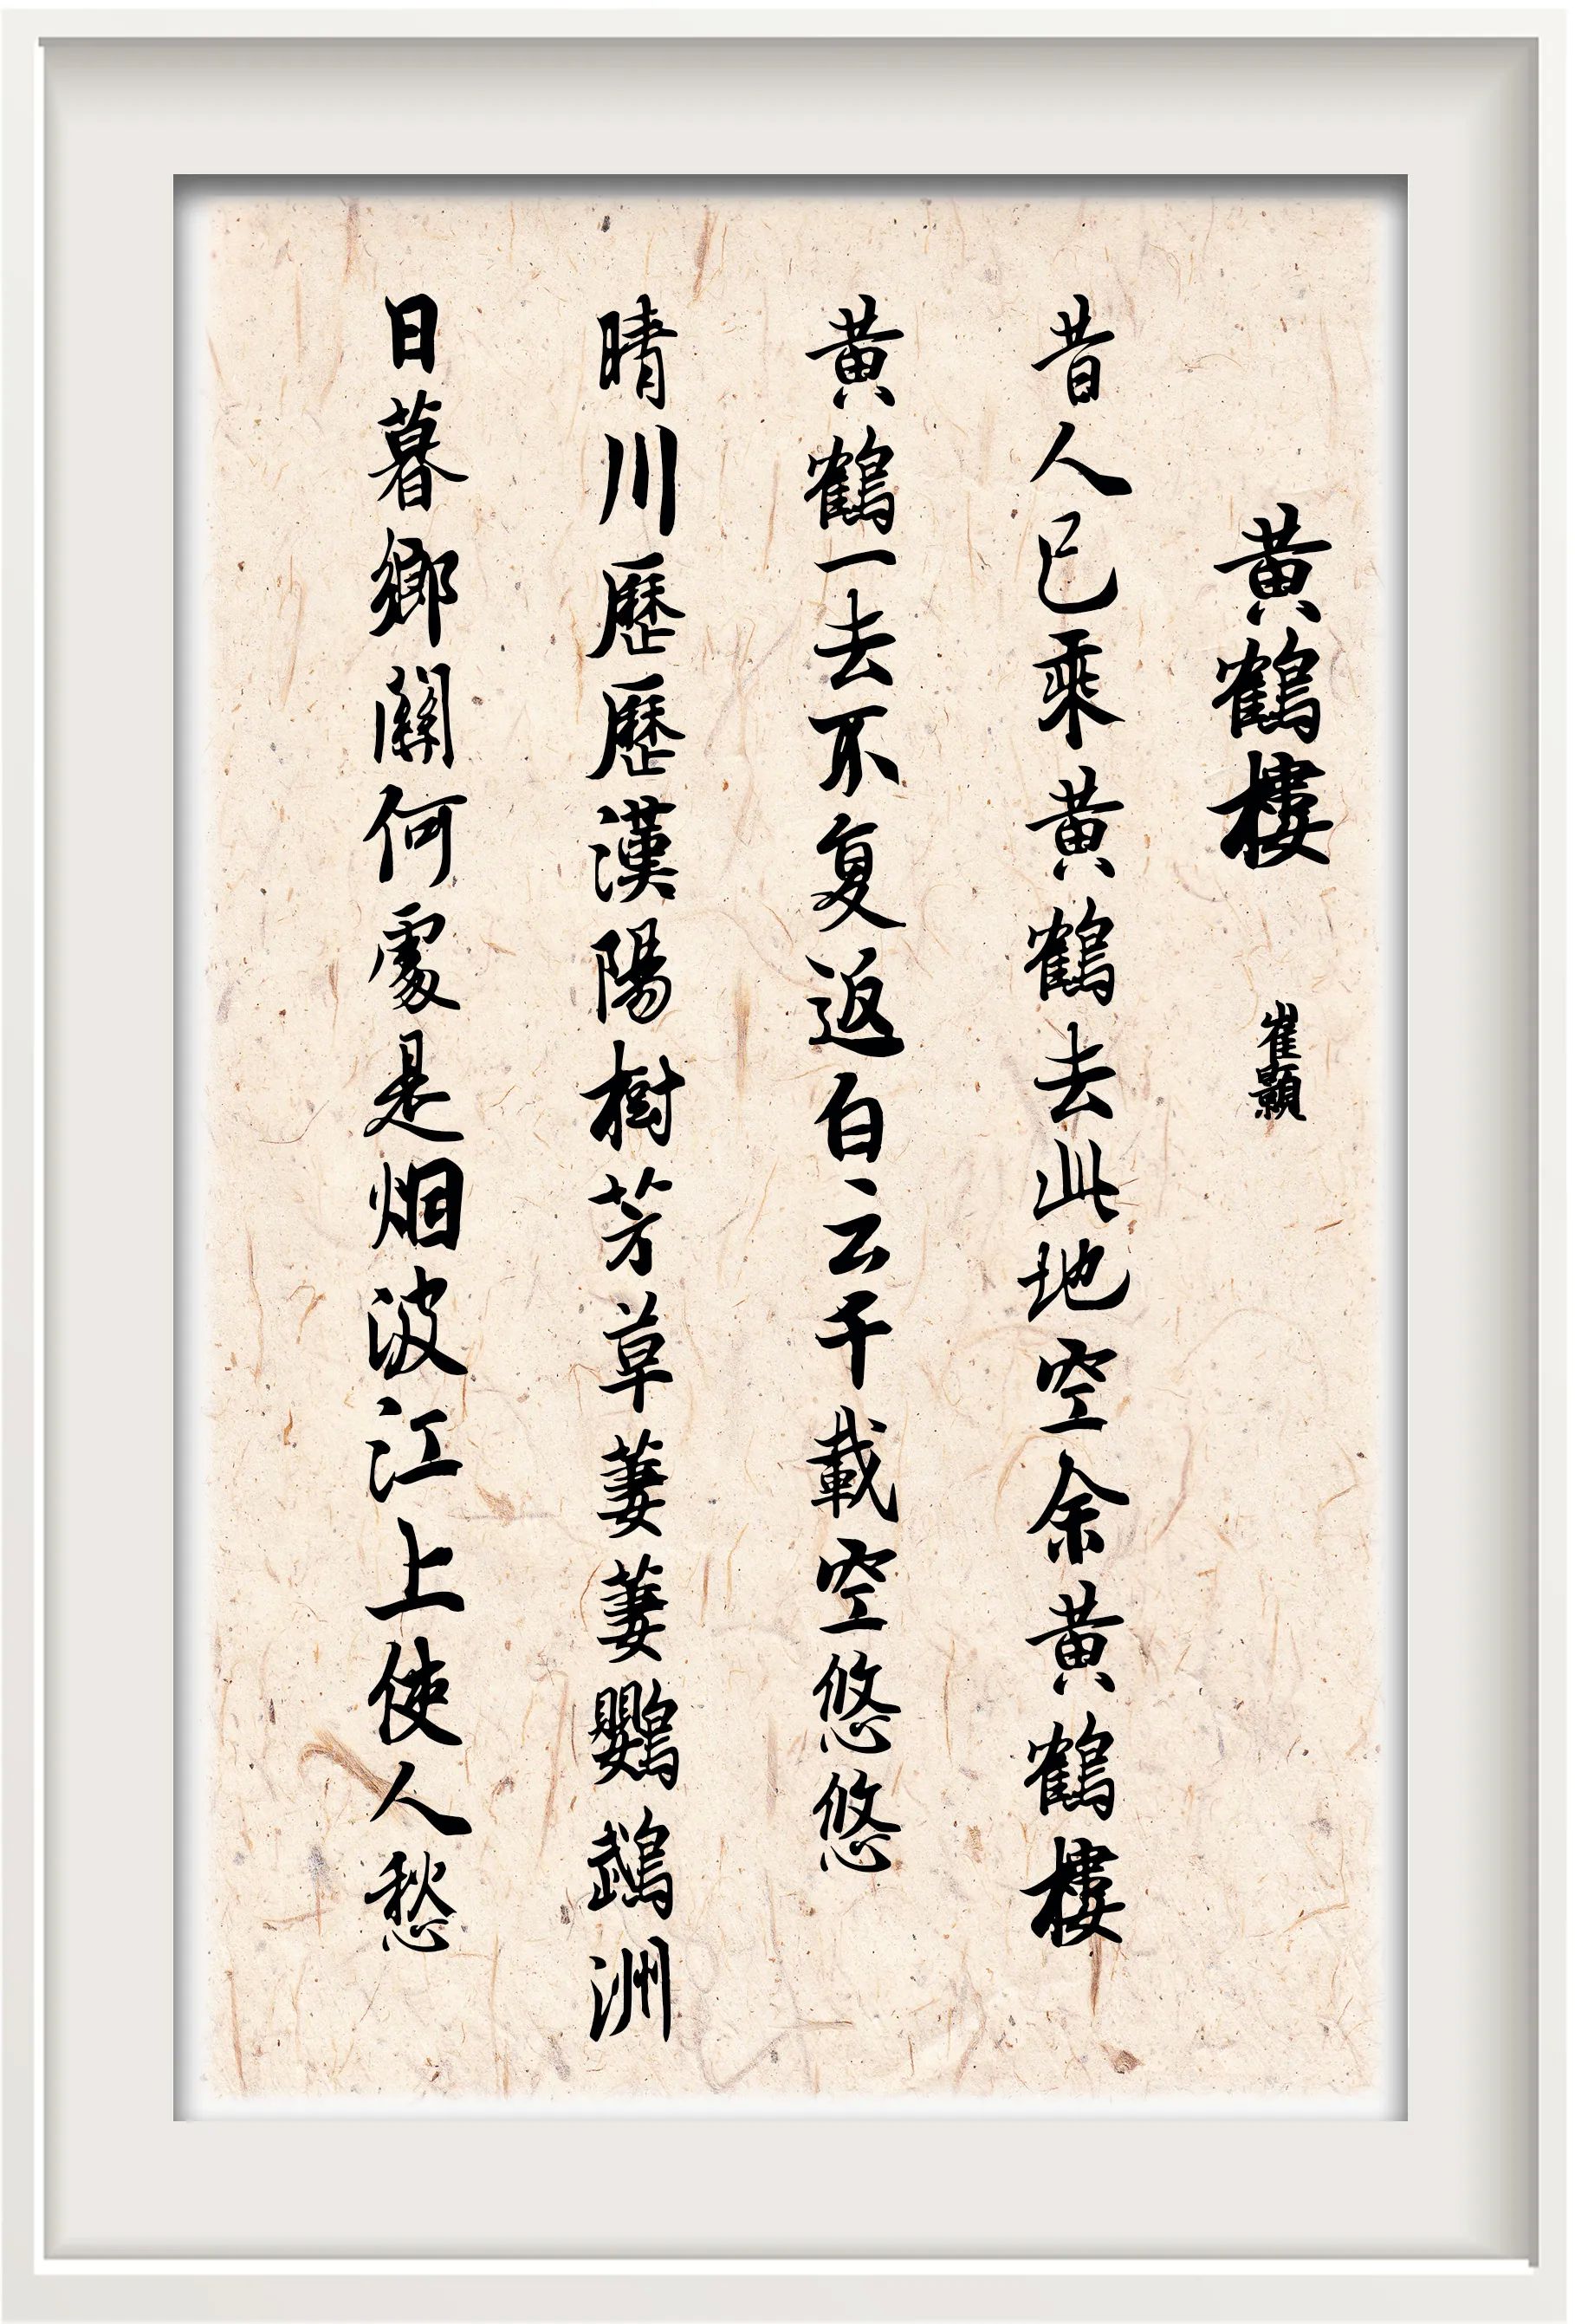 黃鶴樓 崔顥
昔人已乘黃鶴去此地空余黃鶴樓
黃鶴一去不复返白云千載空悠悠
晴川歷歷漢陽樹芳草萋萋鸚鵡洲
日暮鄉關何處是烟波江上使人愁